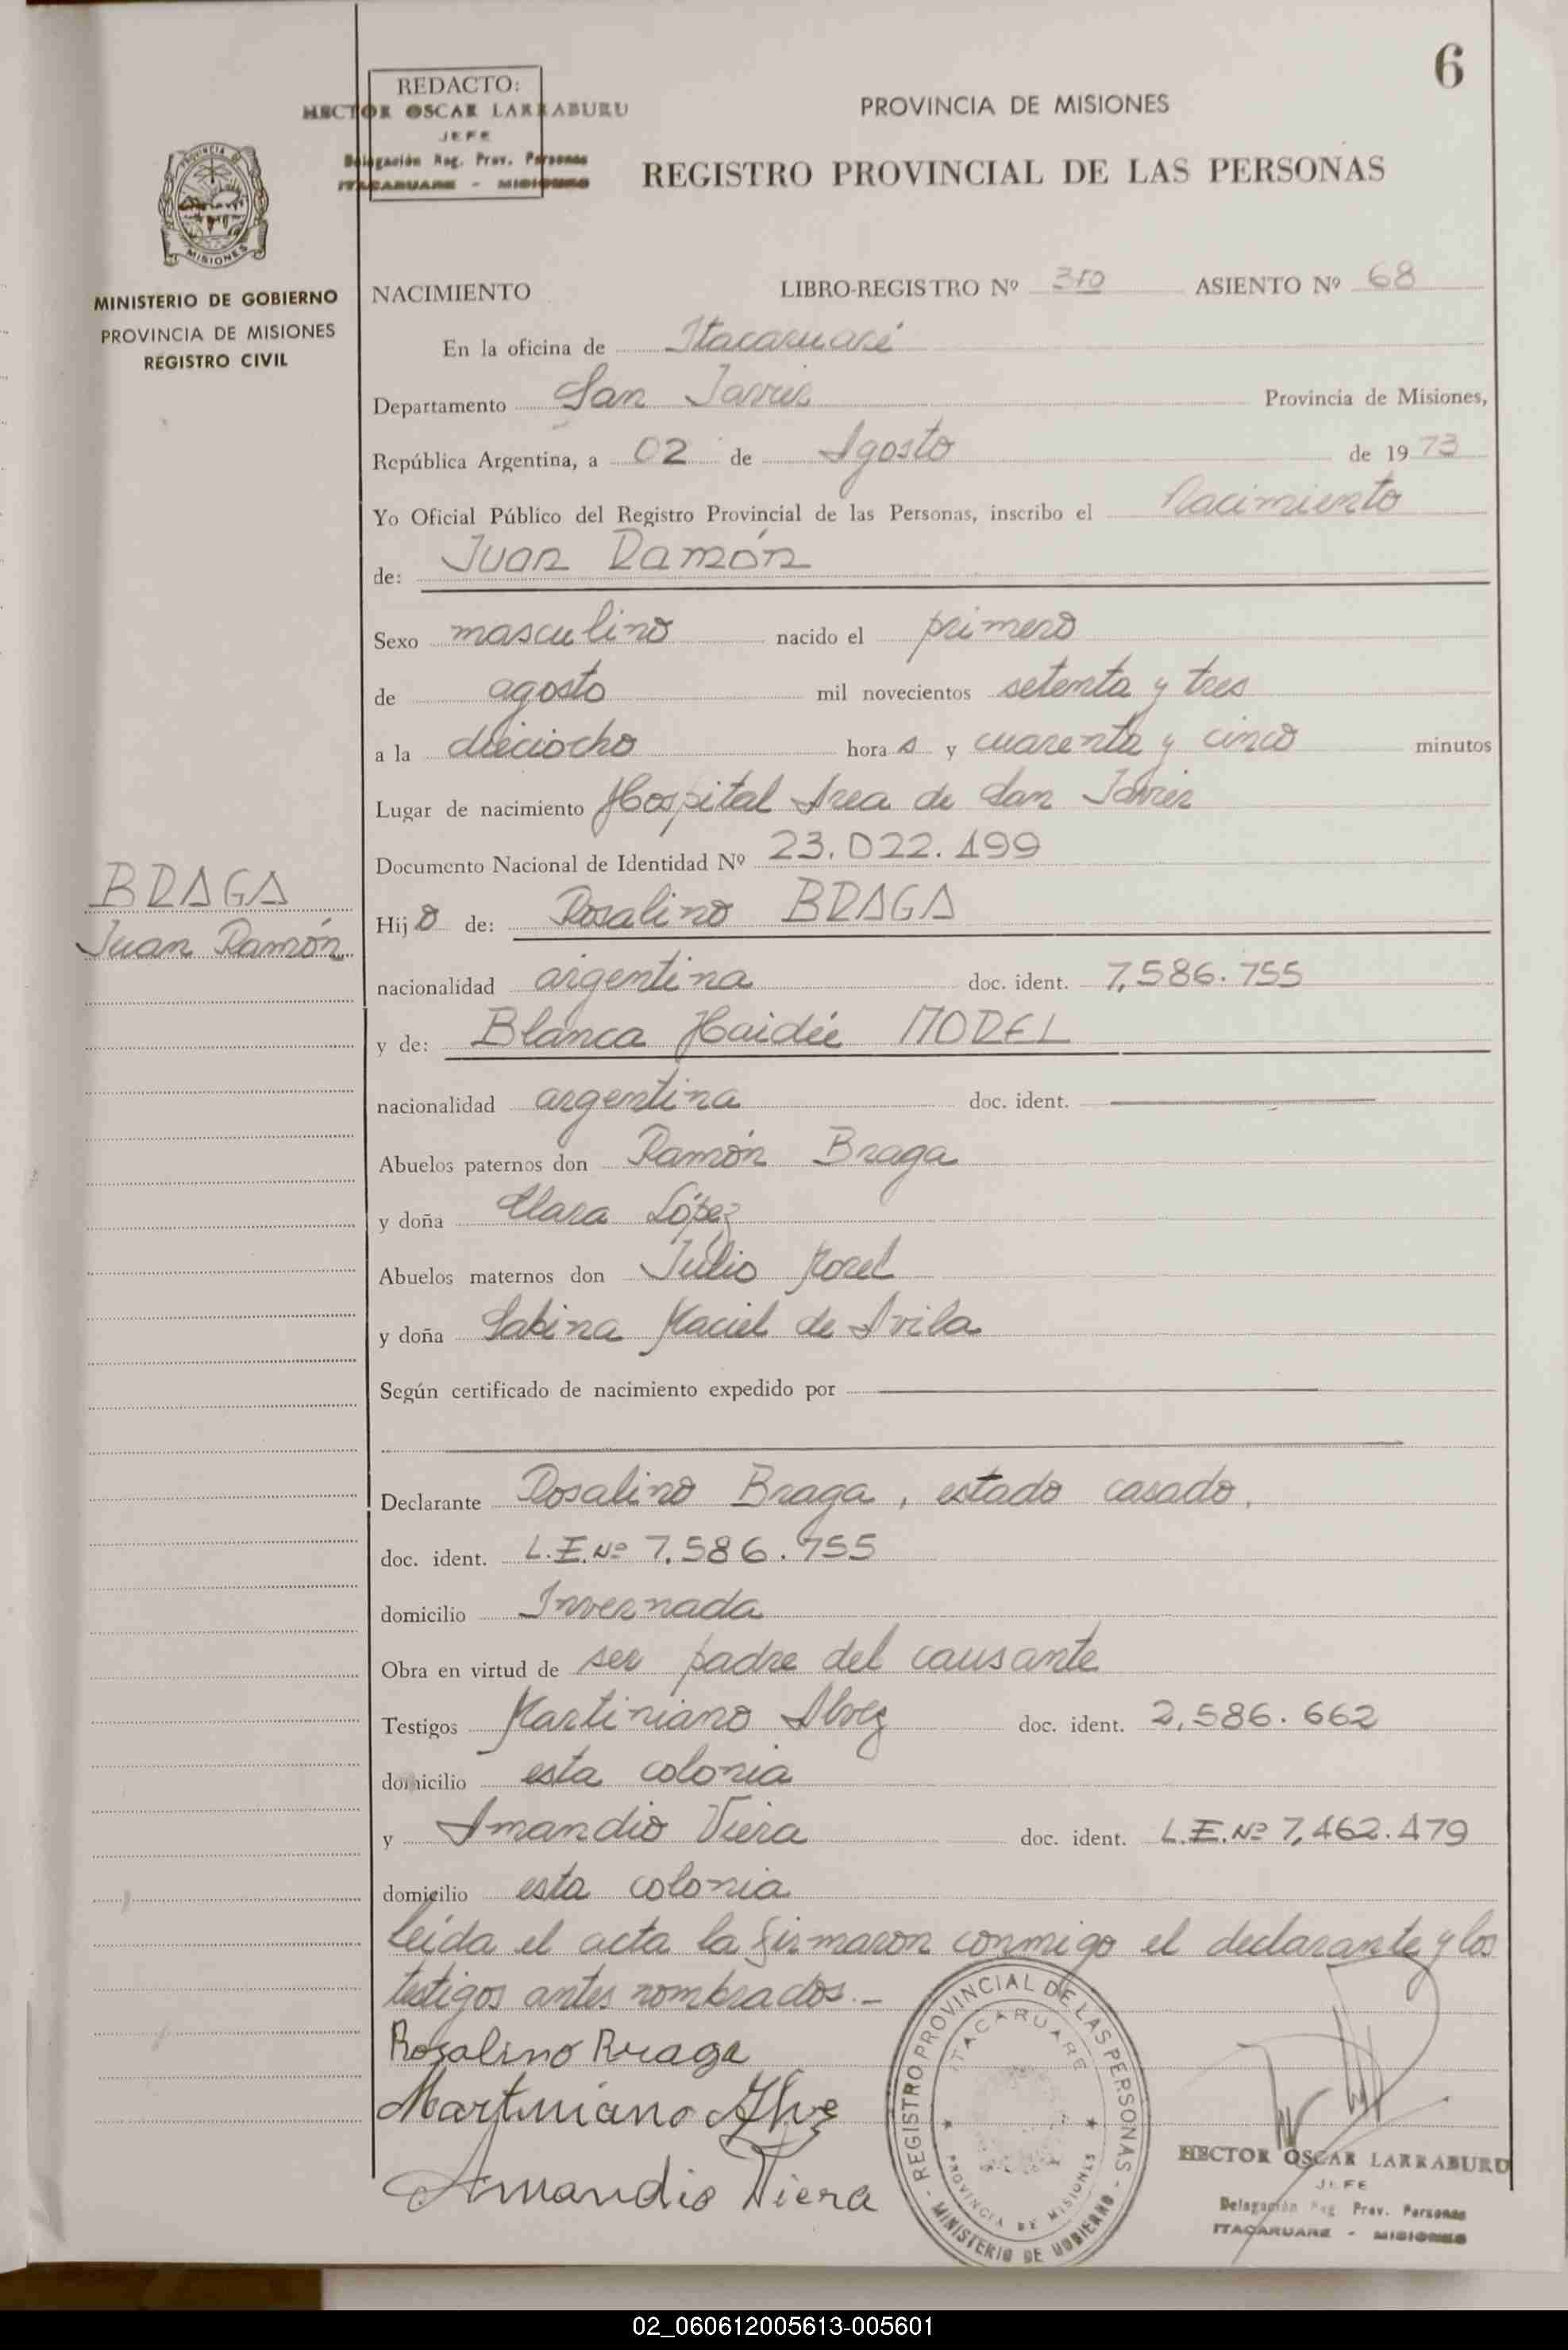 6
REDACTO:
HECTOR OSCAR LARRABURU
JEFE
Delegación Reg. Prov. Personas
ITACARUARE - MISIONES
PROVINCIA DE MISIONES
REGISTRO PROVINCIAL DE LAS PERSONAS
MISIONES
MINISTERIO DE GOBIERNO
PROVINCIA DE MISIONES
REGISTRO CIVIL
NACIMIENTO LIBRO-REGISTRO Nº ASIENTO Nº 68
En la oficina de Itacaruaré
Departamento San Javier Provincia de Misiones,
República Argentina, a 02 de Agosto de 1973
Yo Oficial Público del Registro Provincial de las Personas, inscribo el Nacimiento
de: Juan Ramón
Sexo masculino nacido el primero
de agosto mil novecientos setenta y tres
a la dieciocho hora s y cuarenta y cinco minutos
Lugar de nacimiento Hospital Area de San Javier
Documento Nacional de Identidad Nº 23.022.199
BRAGA
Juan Ramón
Hijo de: Rosalino BRAGA
nacionalidad argentina doc. ident. 7,586.755
y de: Blanca Haidée MOREL
nacionalidad argentina doc. ident.
Abuelos paternos don Ramón Braga
y doña Clara López
Abuelos maternos don Julio Morel
y doña Sabina Maciel de Avila
Según certificado de nacimiento expedido por
Declarante Rosalino Braga, estado casado,
doc. ident. L.E.Nº 7.586.755
domicilio Invernada
Obra en virtud de ser padre del causante
Testigos Martiniano Alvez doc. ident. 2,586.662
domicilio esta colonia
y Amandio Viera doc. ident. L.E.Nº 7,462.479
domicilio esta colonia
leída el acta la firmaron conmigo el declarante y los
testigos antes nombrados.-
Rosalino Braga
Martiniano
Amandio Viera
REGISTRO PROVINCIAL DE LAS PERSONAS - MINISTERIO DE GOBIERNO -
ITACARUARE
PROVINCIA DE MISIONES
HECTOR OSCAR LARRABURU
JEFE
Delegación Reg. Prov. Personas
ITACARUARE - MISIONES
02_060612005613-005601